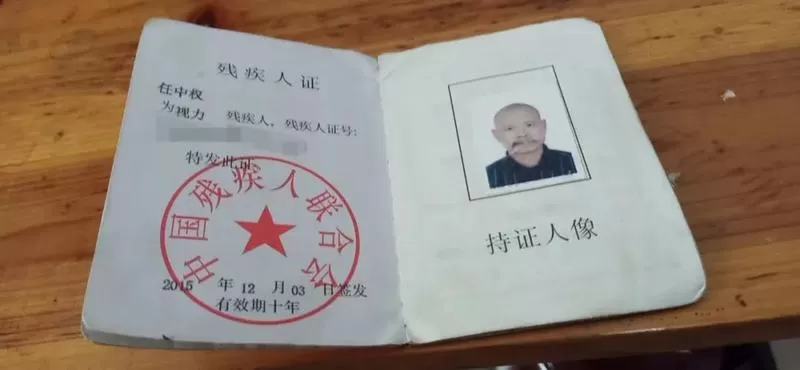 残疾人证
任中权
为视力 残疾人，残疾人证号：
特发此证
中国残疾人联合会
2015 年 12 月 03 日签发
有效期十年
持证人像